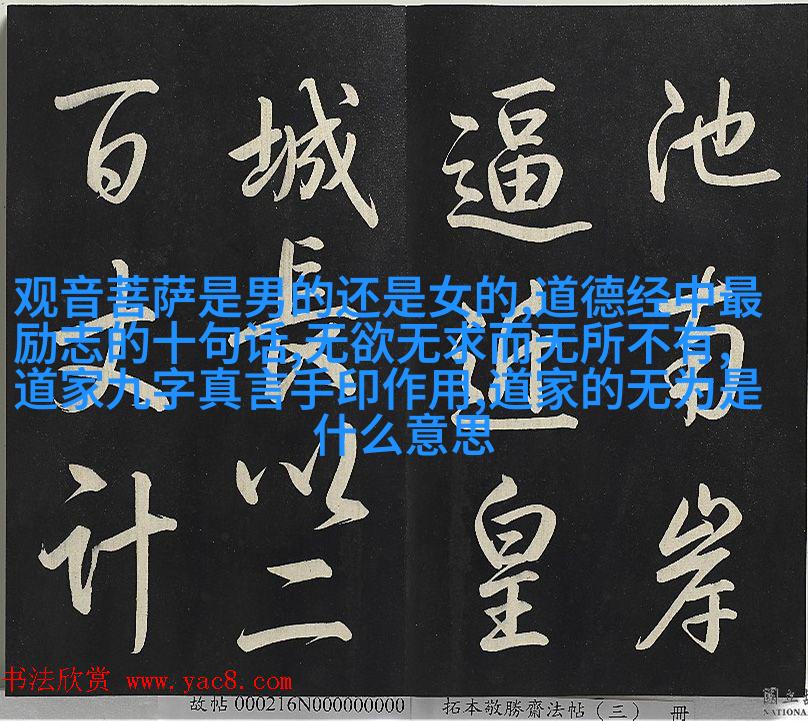 池南岸
逼皇
城長以二
百丈計
观音菩萨是男的还是女的,道德经中最
励志的十句话,无欲无求而无所不有,
道家九字真言手印作用,道家的无为是
什么意思
书法欣赏 www.yac8.com
故帖 000216N000000000 拓本敬勝齋法帖（三） 册
國立
NATIONA